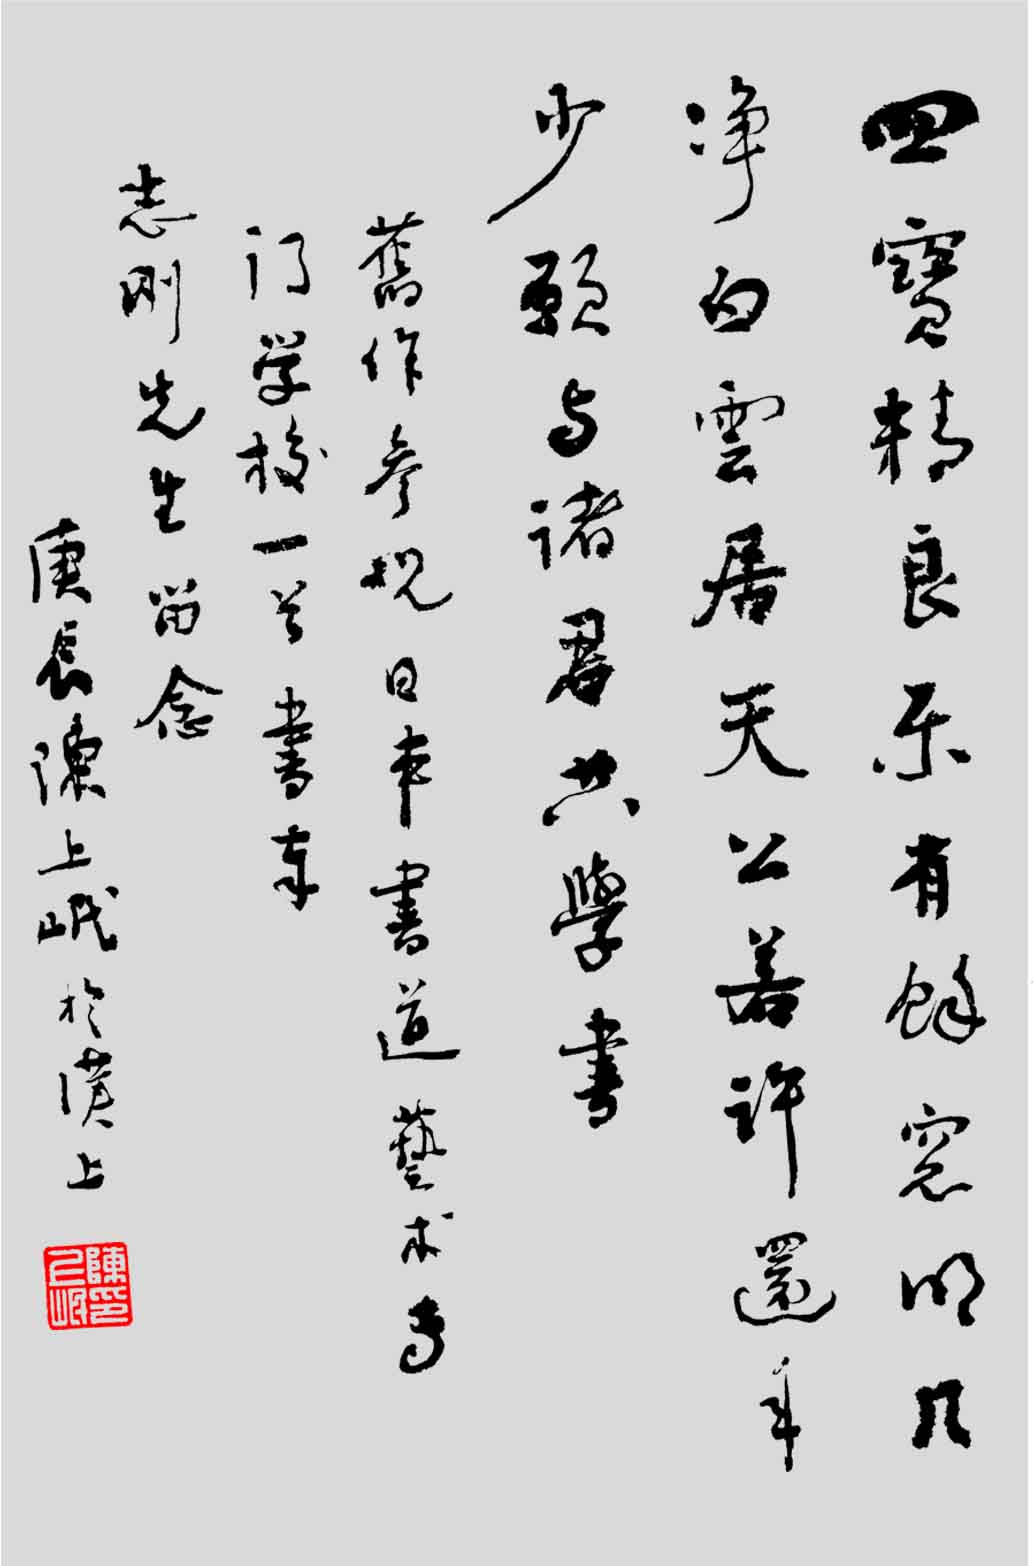 四寶精良樂有餘窓明几
净白雲居天公若許還年
少願与諸君共學書
舊作參观日本書道藝术专
门学校一首書奉
志刚先生留念
庚辰陳上岷於漢上
陳上岷印